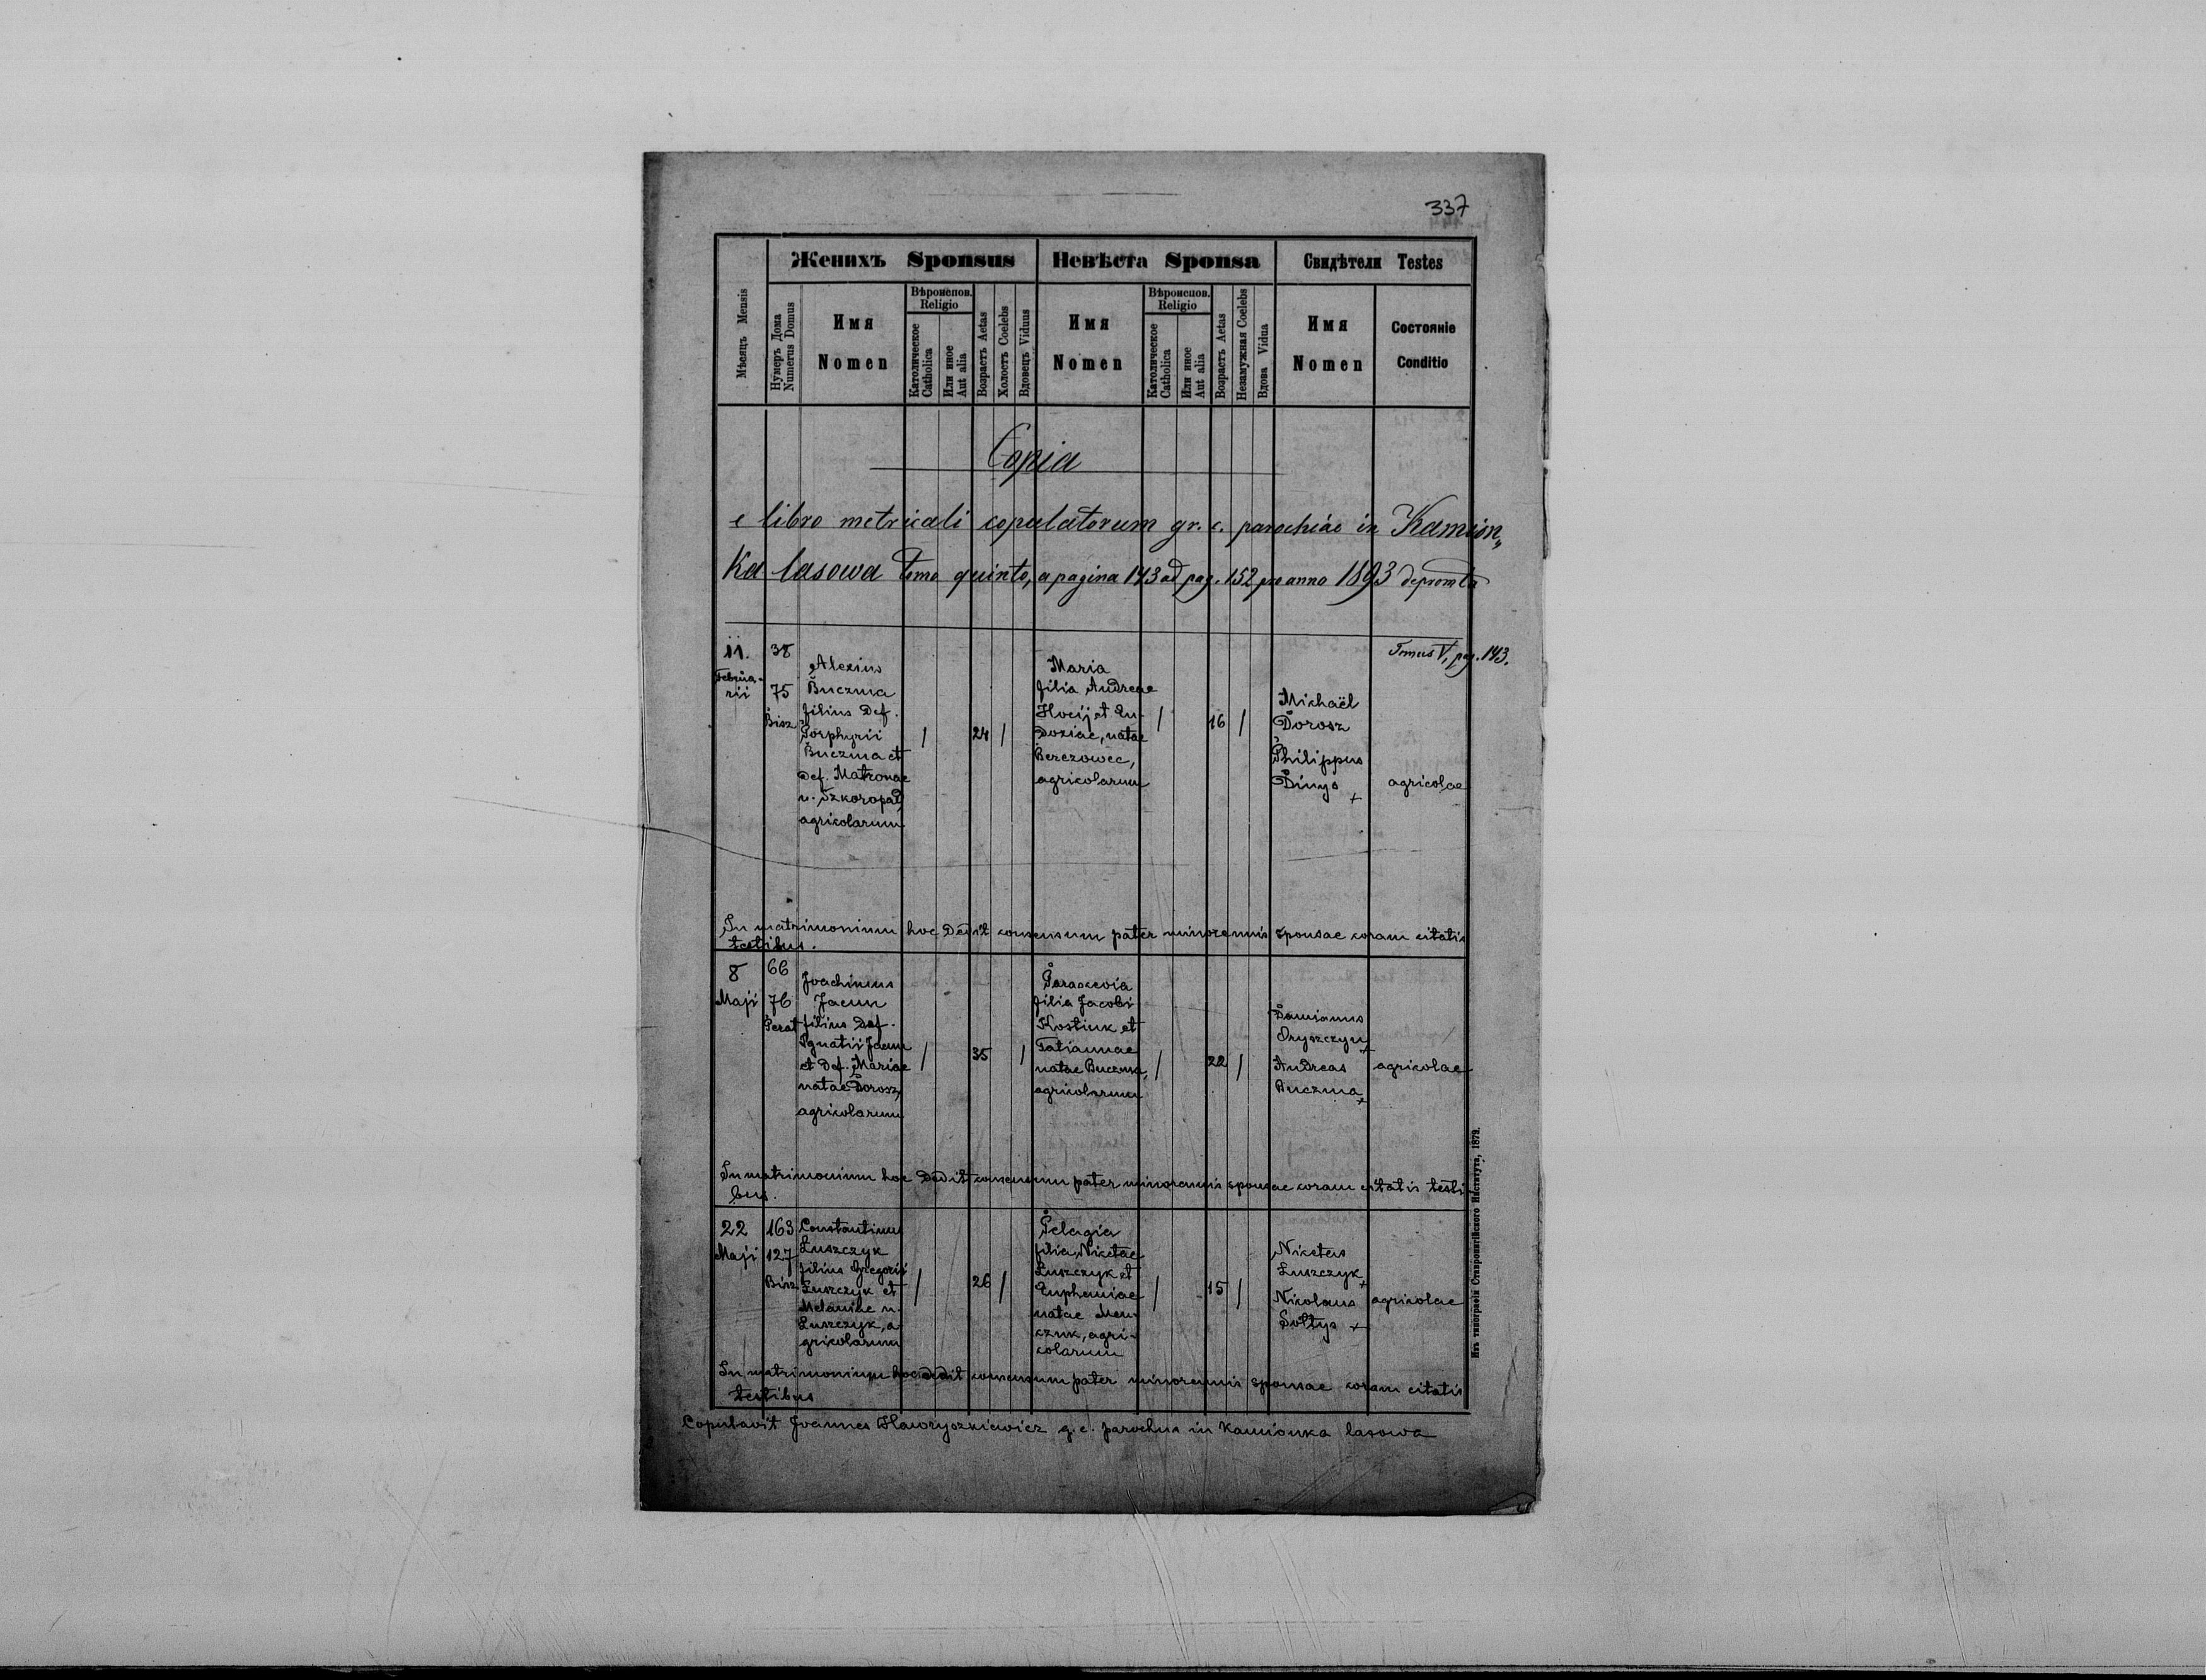 337
Женихъ Sponsus
Невѣста Sponsa
Свидѣтели Testes
Мѣсяцъ Mensis
Нумеръ Дома
Numerus Domus
Имя
Nomen
Вѣроиспов.
Religio
Католическое
Catholica
Или иное
Aut alia
Возрастъ Aetas
Холостъ Coelebs
Вдовецъ Viduus
Имя
Nomen
Вѣроиспов.
Religio
Католическое
Catholica
Или иное
Aut alia
Возрастъ Aetas
Незамужная Coelebs
Вдова Vidua
Имя
Nomen
Состояніе
Conditio
Copia
e libro metricali copulatorum gr. c. parochiae in Kamion„
ka lasowa Tomo quinto, a pagina 143 ad pag. 152 pro anno 1893 depromta
Tomus V, pag. 143.
11.
Februa-
rii
38
75
Bisz
Alexius
Buczma
filius def.
Porphyrii
Buczma et
def. Matronae
n. Szkoropad,
agricolarum
/
24
/
Maria
filia Andreae
Hocij et Eu-
doxiae, natae
Berezowec,
agricolarum
/
16
/
Michaël
Dorosz
Philippus
Dinys +
agricolae
In matrimonium hoc dedit consensum pater minorennis sponsae coram citatis
testibus.
8
Maji
66
76
Perat
Joachimus
Jacun
filius def.
Ignatii Jacun
et def. Mariae
natae Dorosz,
agricolarum
/
35
/
Parascevia
filia Jacobi
Kostiuk et
Tatiannae
natae Buczma,
agricolarum
/
22
/
Damianus
Oryszczyn +
Andreas
Buczma +
agricolae
In matrimonium hoc dedit consensum pater minorennis sponsae coram citatis testi-
bus.
22
Maji
163
127
Bisz
Constantinus
Łuszczyk
filius Gregorii
Łuszczyk et
Melaniae n.
Łuszczyk, a-
gricolarum
/
26
/
Pelagia
filia Nicetae
Łuszczyk et
Euphemiae
natae Men-
czuk, agri-
colarum
/
15
/
Nicetas
Łuszczyk +
Nikolaus
Sołtys +
agricolae
In matrimonium hoc dedit consensum pater minorennis sponsae coram citatis
testibus
Copulavit Joannes Hawryszkiewicz g. c. parochus in Kamionka lasowa
Изъ типографіи Ставропигійского Института, 1879.